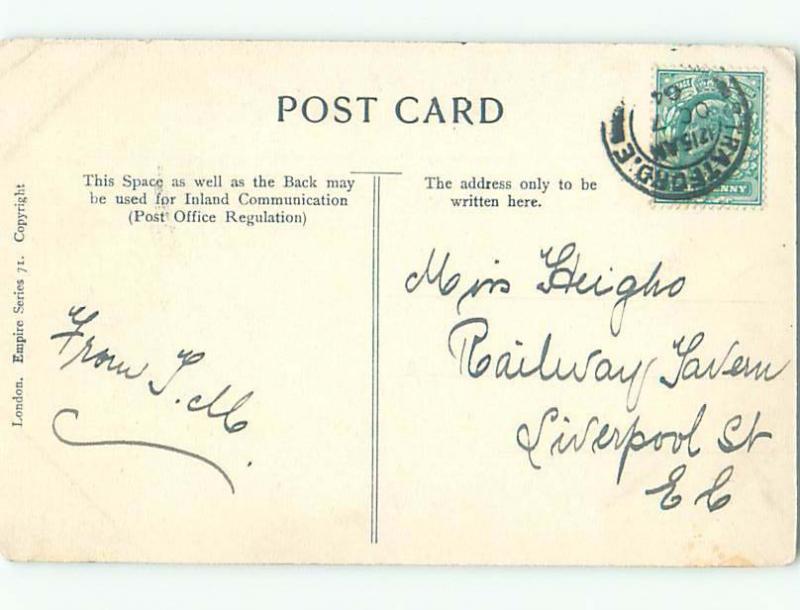 POST CARD
This Space as well as the Back may
be used for Inland Communication
(Post Office Regulation)
The address only to be
written here.
London. Empire Series 71. Copyright
From J. M.
Miss Heigho
Railway Tavern
Liverpool St
E C
STRATFORD. E
12 15 AM
OC 7
04
NNY